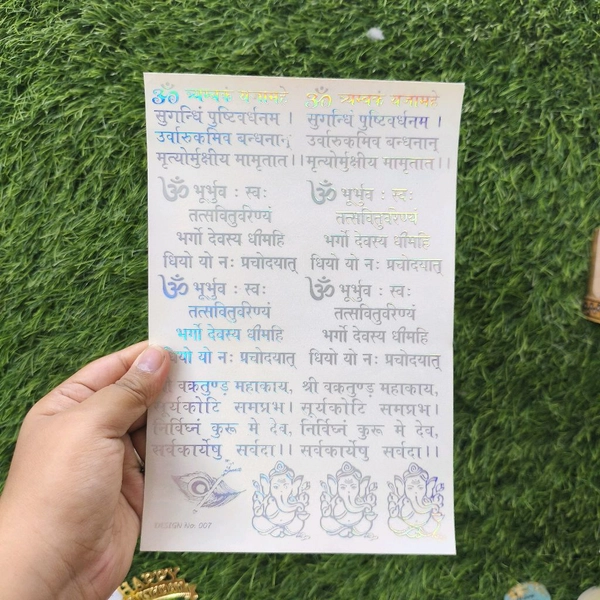 ॐ त्र्यम्बकं यजामहे
सुगन्धिं पुष्टिवर्धनम ।
उर्वारुकमिव बन्धनान्
मृत्योर्मुक्षीय मामृतात ।।
ॐ त्र्यम्बकं यजामहे
सुगन्धिं पुष्टिवर्धनम ।
उर्वारुकमिव बन्धनान्
मृत्योर्मुक्षीय मामृतात ।।
ॐ भूर्भुव : स्वः
तत्सवितुर्वरेण्यं
भर्गो देवस्य धीमहि
धियो यो नः प्रचोदयात्
ॐ भूर्भुव : स्वः
तत्सवितुर्वरेण्यं
भर्गो देवस्य धीमहि
धियो यो नः प्रचोदयात्
ॐ भूर्भुव : स्वः
तत्सवितुर्वरेण्यं
भर्गो देवस्य धीमहि
धियो यो नः प्रचोदयात्
ॐ भूर्भुव : स्वः
तत्सवितुर्वरेण्यं
भर्गो देवस्य धीमहि
धियो यो नः प्रचोदयात्
श्री वक्रतुण्ड महाकाय,
सूर्यकोटि समप्रभ।
निर्विघ्नं कुरू मे देव,
सर्वकार्येषु सर्वदा।।
श्री वक्रतुण्ड महाकाय,
सूर्यकोटि समप्रभ।
निर्विघ्नं कुरू मे देव,
सर्वकार्येषु सर्वदा।।
DESIGN No: 007
HAPPY